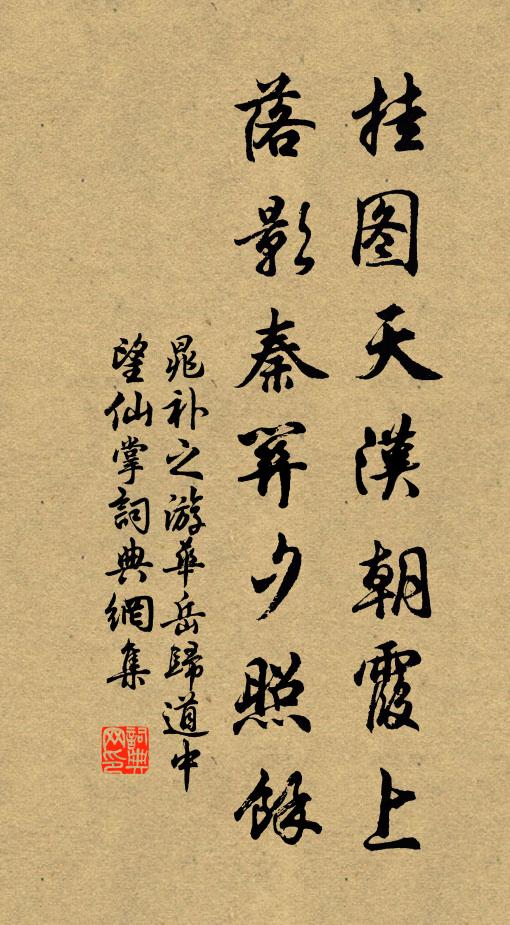 挂图天汉朝霞上
落影秦笄夕照餘
晁补之游華岳歸道中
望仙掌詞典網集
詞典网印